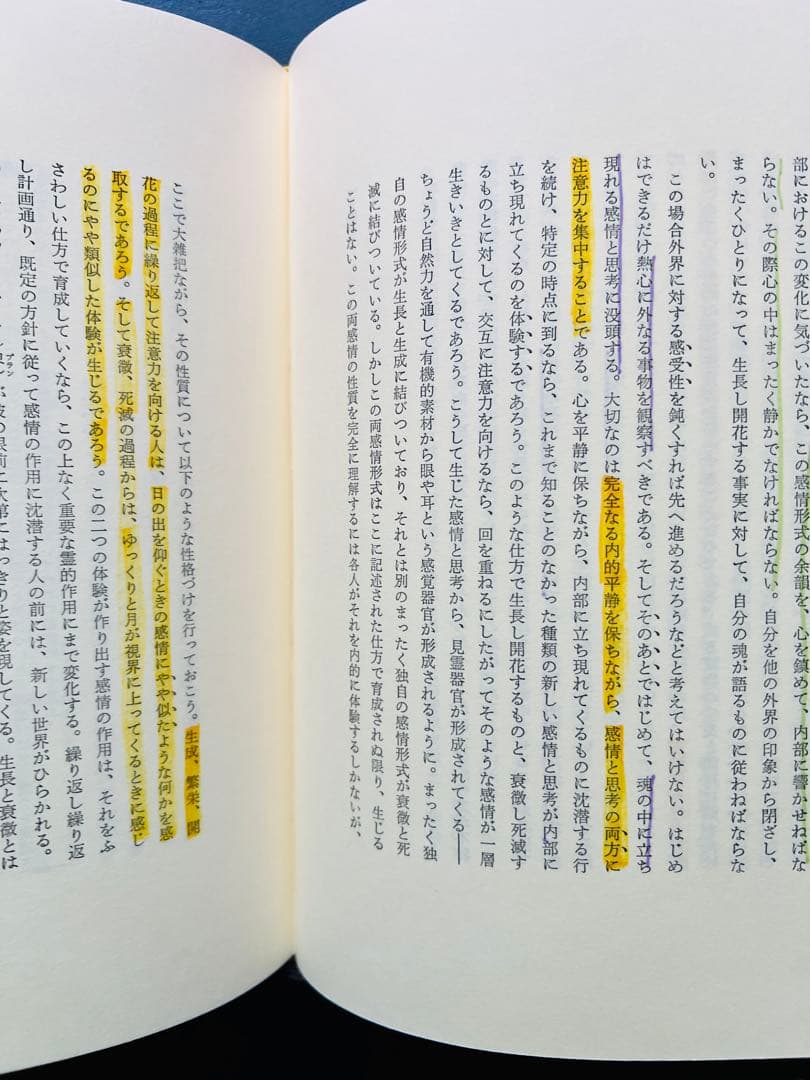 部におけるこの変化に気づいたなら、この感情形式の余韻を、心を鎮めて、内部に響かせねばな
らない。その際心の中はまったく静かでなければならない。自分を他の外界の印象から閉ざし、
まったくひとりになって、生長し開花する事実に対して、自分の魂が語るものに従わねばならな
い。
この場合外界に対する感受性を鈍くすれば先へ進めるだろうなどと考えてはいけない。はじめ
はできるだけ熱心に外なる事物を観察すべきである。そしてそのあとではじめて、魂の中に立ち
現れる感情と思考に没頭する。大切なのは完全なる内的平静を保ちながら、感情と思考の両方に
注意力を集中することである。心を平静に保ちながら、内部に立ち現れてくるものに沈潜する行
を続け、特定の時点に到るなら、これまで知ることのなかった種類の新しい感情と思考が内部に
立ち現れてくるのを体験するであろう。このような仕方で生長し開花するものと、衰微し死滅す
るものとに対して、交互に注意力を向けるなら、回を重ねるにしたがってそのような感情が一層
生きいきとしてくるであろう。こうして生じた感情と思考から、見霊器官が形成されてくる――
ちょうど自然力を通して有機的素材から眼や耳という感覚器官が形成されるように。まったく独
自の感情形式が生長と生成に結びついており、それとは別のまったく独自の感情形式が衰微と死
滅に結びついている。しかしこの両感情形式はここに記述された仕方で育成されぬ限り、生じる
ことはない。この両感情の性質を完全に理解するには各人がそれを内的に体験するしかないが、
ここで大雑把ながら、その性質について以下のような性格づけを行っておこう。生成、繁栄、開
花の過程に繰り返して注意力を向ける人は、日の出を仰ぐときの感情にやや似たような何かを感
取するであろう。そして衰微、死滅の過程からは、ゆっくりと月が視界に上ってくるときに感じ
るのにやや類似した体験が生じるであろう。この二つの体験が作り出す感情の作用は、それをふ
さわしい仕方で育成していくなら、この上なく重要な霊的作用にまで変化する。繰り返し繰り返
し計画通り、既定の方針に従って感情の作用に沈潜する人の前には、新しい世界がひらかれる。
プラン
彼の眼前に次第にはっきりと姿を現してくる。生長と衰微とは